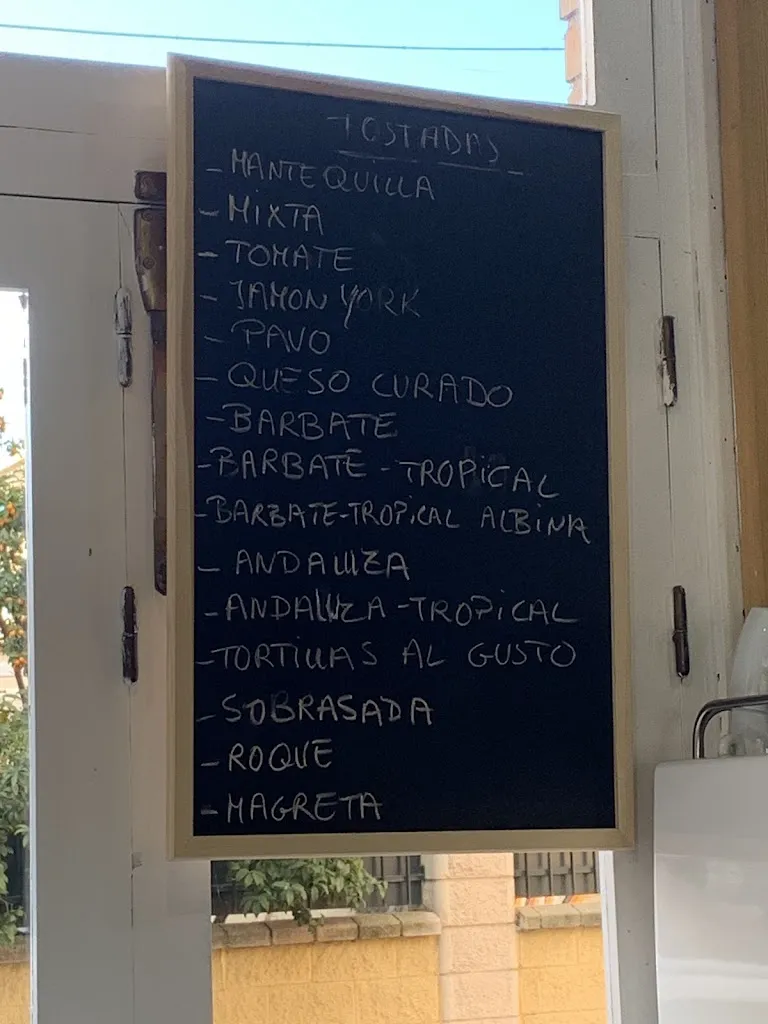 TOSTADAS
- MANTEQUILLA
- MIXTA
- TOMATE
- JAMON YORK
- PAVO
- QUESO CURADO
- BARBATE
- BARBATE - TROPICAL
- BARBATE-TROPICAL ALBINA
- ANDALUZA
- ANDALUZA - TROPICAL
- TORTILLAS AL GUSTO
- SOBRASADA
- ROQUE
- MAGRETA